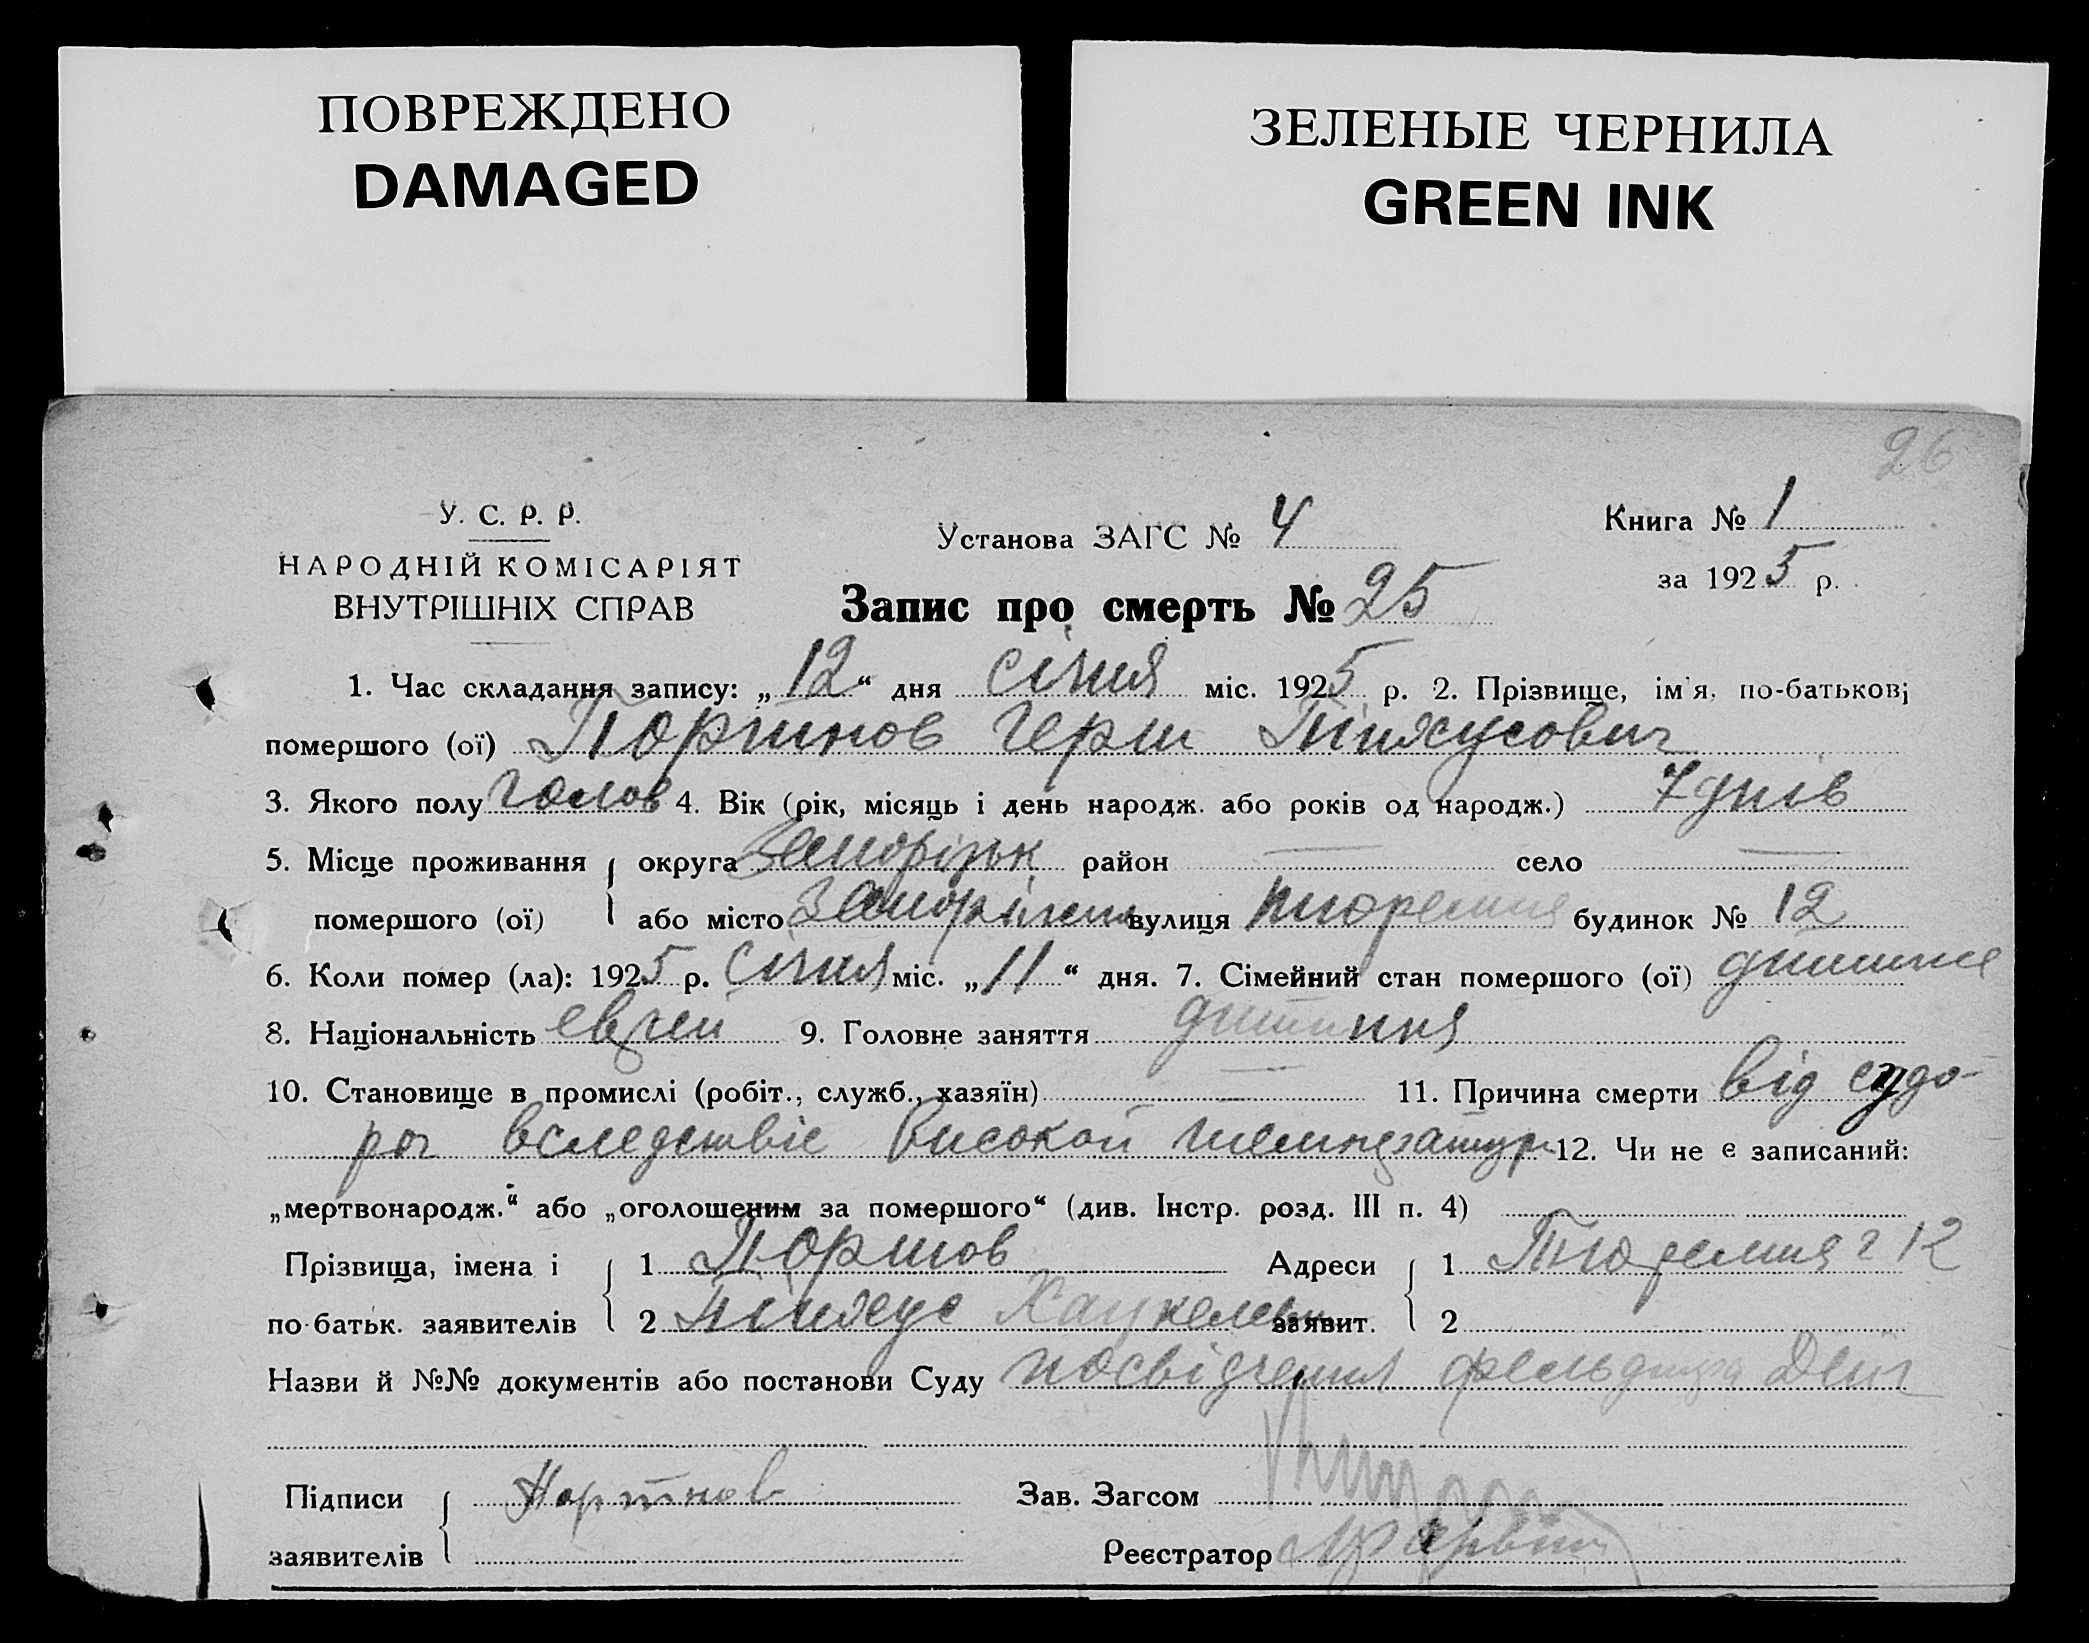 ПОВРЕЖДЕНО
DAMAGED
ЗЕЛЕНЫЕ ЧЕРНИЛА
GREEN INK
26
У. С. Р. Р.
НАРОДНІЙ КОМІСАРІЯТ
ВНУТРІШНІХ СПРАВ
Установа ЗАГС № 4
Книга № 1
за 1925 р.
Запис про смерть № 25
1. Час складання запису: „12“ дня січня міс. 1925 р. 2. Прізвище, ім'я, по-батькові
помершого (ої) Портнов Герш Пінхусович
3. Якого полу чолов 4. Вік (рік, місяць і день народж. або років од народж.) 7 днів
5. Місце проживання округа Запоріжж район — село —
помершого (ої) або місто Запоріжжя вулиця тюремная будинок № 12
6. Коли помер (ла): 1925 р. Січня міс. „11“ дня. 7. Сімейний стан помершого (ої) дитина
8. Національність еврей 9. Головне заняття дитина
10. Становище в промислі (робіт., служб., хазяїн) — 11. Причина смерти від судо-
рог вследствіе високой температур 12. Чи не є записаний:
„мертвонародж.“ або „оголошеним за помершого“ (див. Інстр. розд. III п. 4)
Прізвища, імена і 1 Портнов Адреси 1 Тюремная 12
по-батьк. заявителів 2 Пінхус заявит. 2
Назви й №№ документів або постанови Суду посвідчення фельдшера
Підписи Портнов Зав. Загсом
заявителів Реєстратор